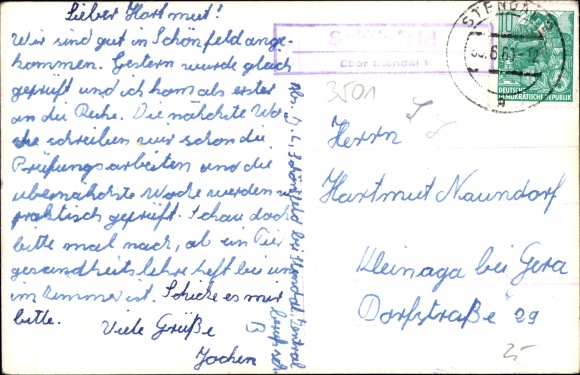 Lieber Hartmut!
Wir sind gut in Schönfeld ange-
kommen. Gestern wurde gleich
geprüft und ich kam als erster
an die Reihe. Die nächste Wo-
che schreiben wir schon die
Prüfungsarbeiten und die
übernächste Woche werden wir
praktisch geprüft. Schau doch
bitte mal nach, ob ein Tier
gesundheitslehre heft bei uns
im Zimmer ist. Schicke es mir
bitte.
Viele Grüße
Jochen
Schönfeld bei Stendal, Zentral
berufssch.
über Stendal 1
STENDAL
10
DEUTSCHE
DEMOKRATISCHE REPUBLIK
3501
Herrn
Hartmut Naundorf
Kleinaga bei Gera
Dorfstraße 29
25